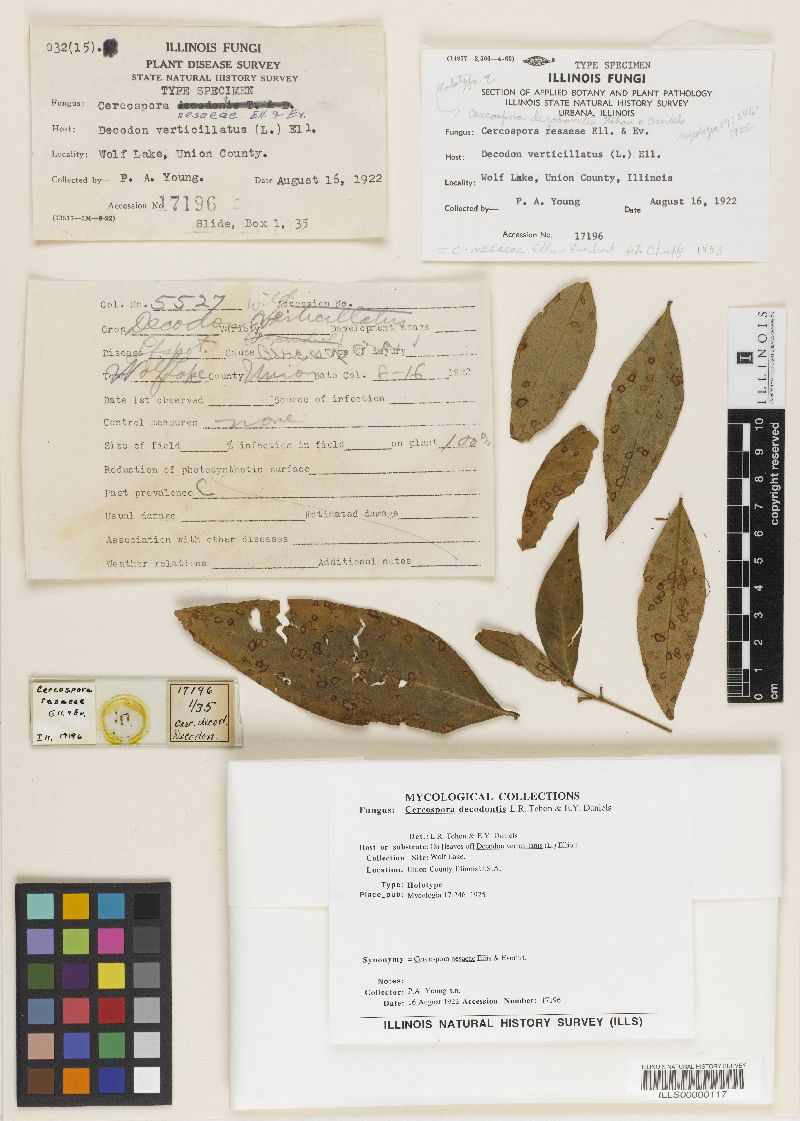 032(15).
ILLINOIS FUNGI
PLANT DISEASE SURVEY
STATE NATURAL HISTORY SURVEY
TYPE SPECIMEN
Fungus: Cercospora decodontis T. & D.
nesaeae Ell. & Ev.
Host: Decodon verticillatus (L.) Ell.
Locality: Wolf Lake, Union County.
Collected by— P. A. Young. Date August 16, 1922
Accession No. 17196
Slide, Box 1, 35
(14977—2,500—4-60)
TYPE SPECIMEN
ILLINOIS FUNGI
SECTION OF APPLIED BOTANY AND PLANT PATHOLOGY
ILLINOIS STATE NATURAL HISTORY SURVEY
URBANA, ILLINOIS
Holotype of
Cercospora decodontis Tehon & Daniels
Mycologia 17:246
1925
Fungus: Cercospora nesaeae Ell. & Ev.
Host: Decodon verticillatus (L.) Ell.
Locality: Wolf Lake, Union County, Illinois
Collected by— P. A. Young Date August 16, 1922
Accession No. 17196
= C. nesaeae Ellis & Everhart fide Chupp 1953
Col. No. 5527 Accession No.
Crop Decodon Variety verticillatus Development Stage
Disease lf spot Cause Cercospora Type of Injury
Wolf Lake County Union Date Col. 8-16 1922
Date 1st observed Source of infection
Control measures none
Size of field % infection in field on plant 100%
Reduction of photosynthetic surface
Past prevalence C
Usual damage Estimated damage
Association with other diseases
Weather relations Additional notes
ILLINOIS
copyright reserved
10 9 8 7 6 5 4 3 2 1 0
cm
Cercospora
nesaeae
Ell. & Ev.
Ill. 17196
in
17196
1/35
Cer. decod.
Decodon.
MYCOLOGICAL COLLECTIONS
Fungus: Cercospora decodontis L.R. Tehon & E.Y. Daniels
Det.: L.R. Tehon & E.Y. Daniels
Host or substrate: On [leaves of] Decodon verticillatus (L.) Elliott
Collection Site: Wolf Lake.
Location: Union County Illinois U.S.A.
Type: Holotype
Place_pub: Mycologia 17:246. 1925.
Synonymy = Cercospora nesaeae Ellis & Everhart.
Notes:
Collector: P.A. Young s.n.
Date: 16 August 1922 Accession Number: 17196
ILLINOIS NATURAL HISTORY SURVEY (ILLS)
ILLINOIS NATURAL HISTORY SURVEY
ILLS00000117